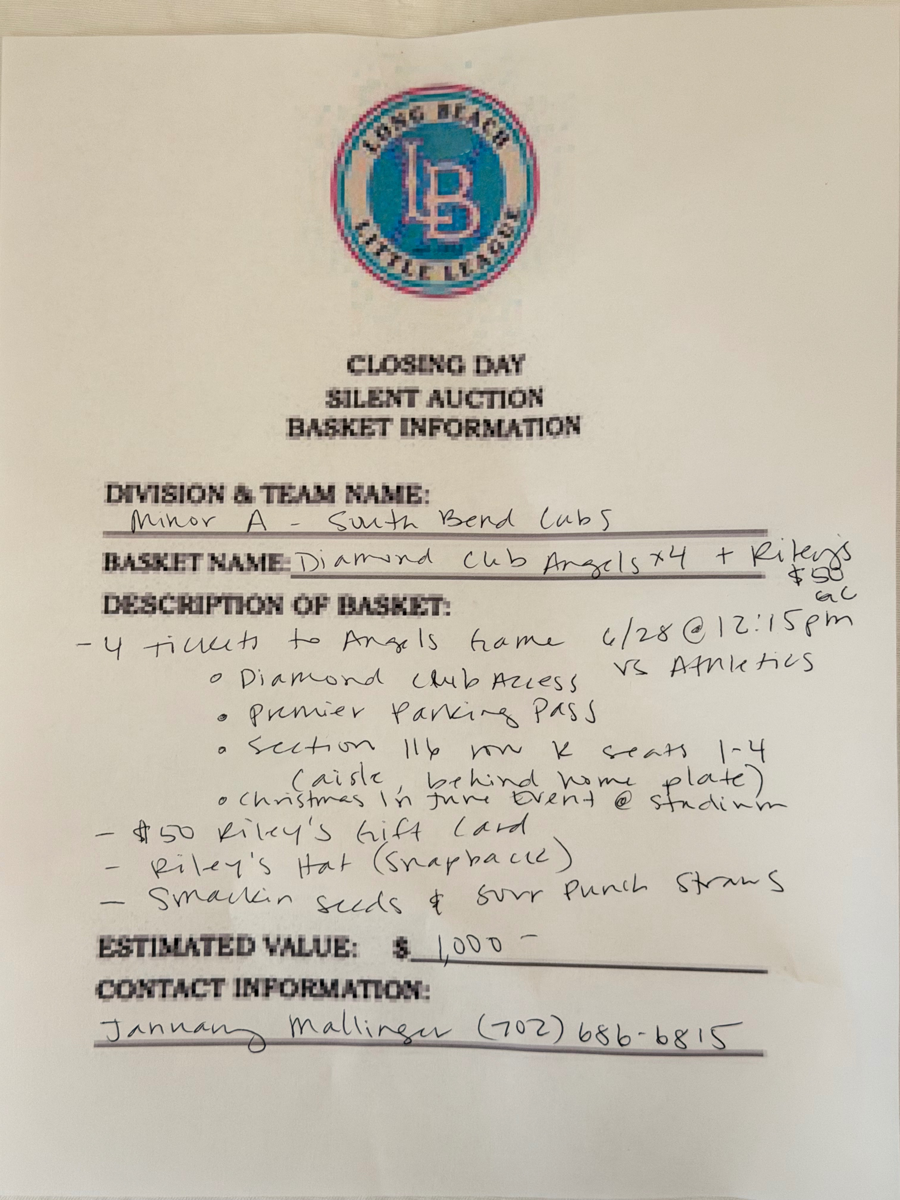 LONG BEACH
LB
LITTLE LEAGUE
CLOSING DAY
SILENT AUCTION
BASKET INFORMATION
DIVISION & TEAM NAME:
Minor A - South Bend Cubs
BASKET NAME: Diamond Club Angels x4 + Riley's
$50
GC
DESCRIPTION OF BASKET:
- 4 Tickets to Angels Game 6/28 @ 12:15pm
vs Athletics
• Diamond Club Access
• Premier Parking Pass
• Section 116 row K seats 1-4
(aisle, behind home plate)
• Christmas in June Event @ Stadium
- $50 Riley's Gift Card
- Riley's Hat (Snapback)
- Smackin seeds & Sour Punch Straws
ESTIMATED VALUE: $ 1,000 -
CONTACT INFORMATION:
January Mallinger (702) 686-6815